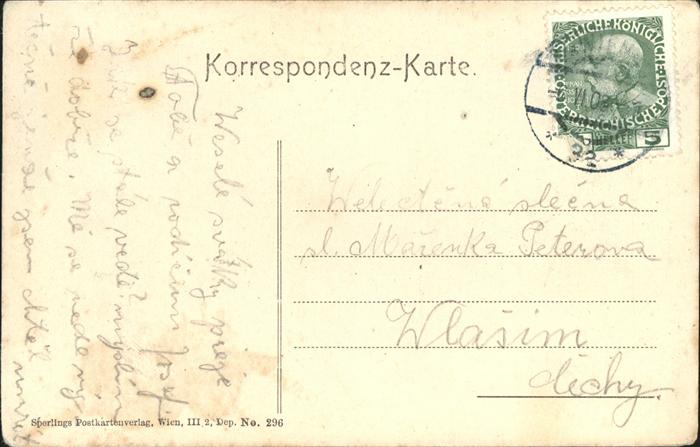 Korrespondenz-Karte.
KAISERLICHE KÖNIGLICHE
ÖSTERREICHISCHE POST
5 HELLER
Veselé svátky přeje
Tobě a rodičům Josef.
se stále vedě myslím
že dobře. Mě se vede
jsem chtěl
Velectěná slečna
sl. Mařenka Peterova
Vlašim
čechy.
Sperlings Postkartenverlag, Wien, III 2, Dep. No. 296